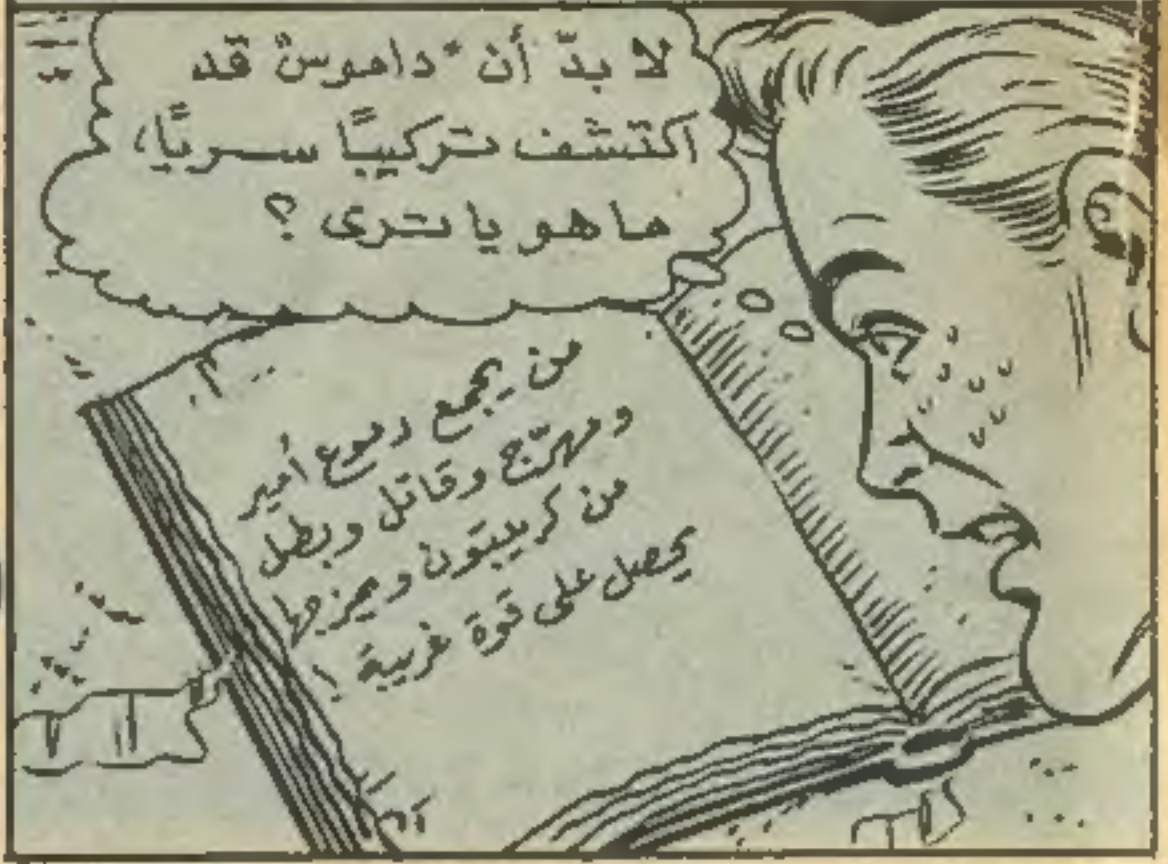 لا بدّ أن "داموس" قد
اكتشف تركيبًا سريًا،
ما هو يا ترى ؟
من يجمع دموع أمير
ومهرّج وقاتل وبطل
من كريبتون ويمزجها
يحصل على قوة غريبة !